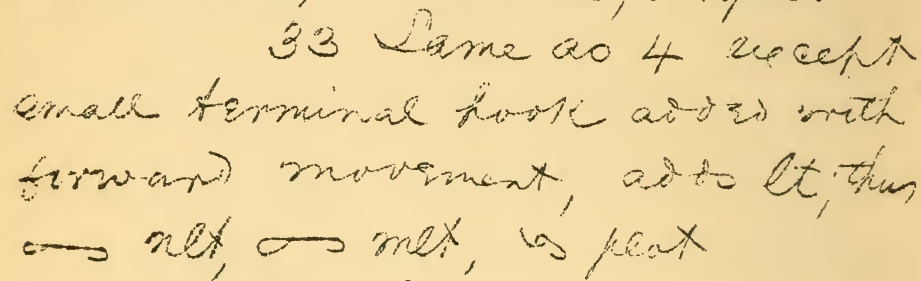 33 Same as 4 except
small terminal hook added with
forward movement, adds lt, thus
nlt, mlt, plt